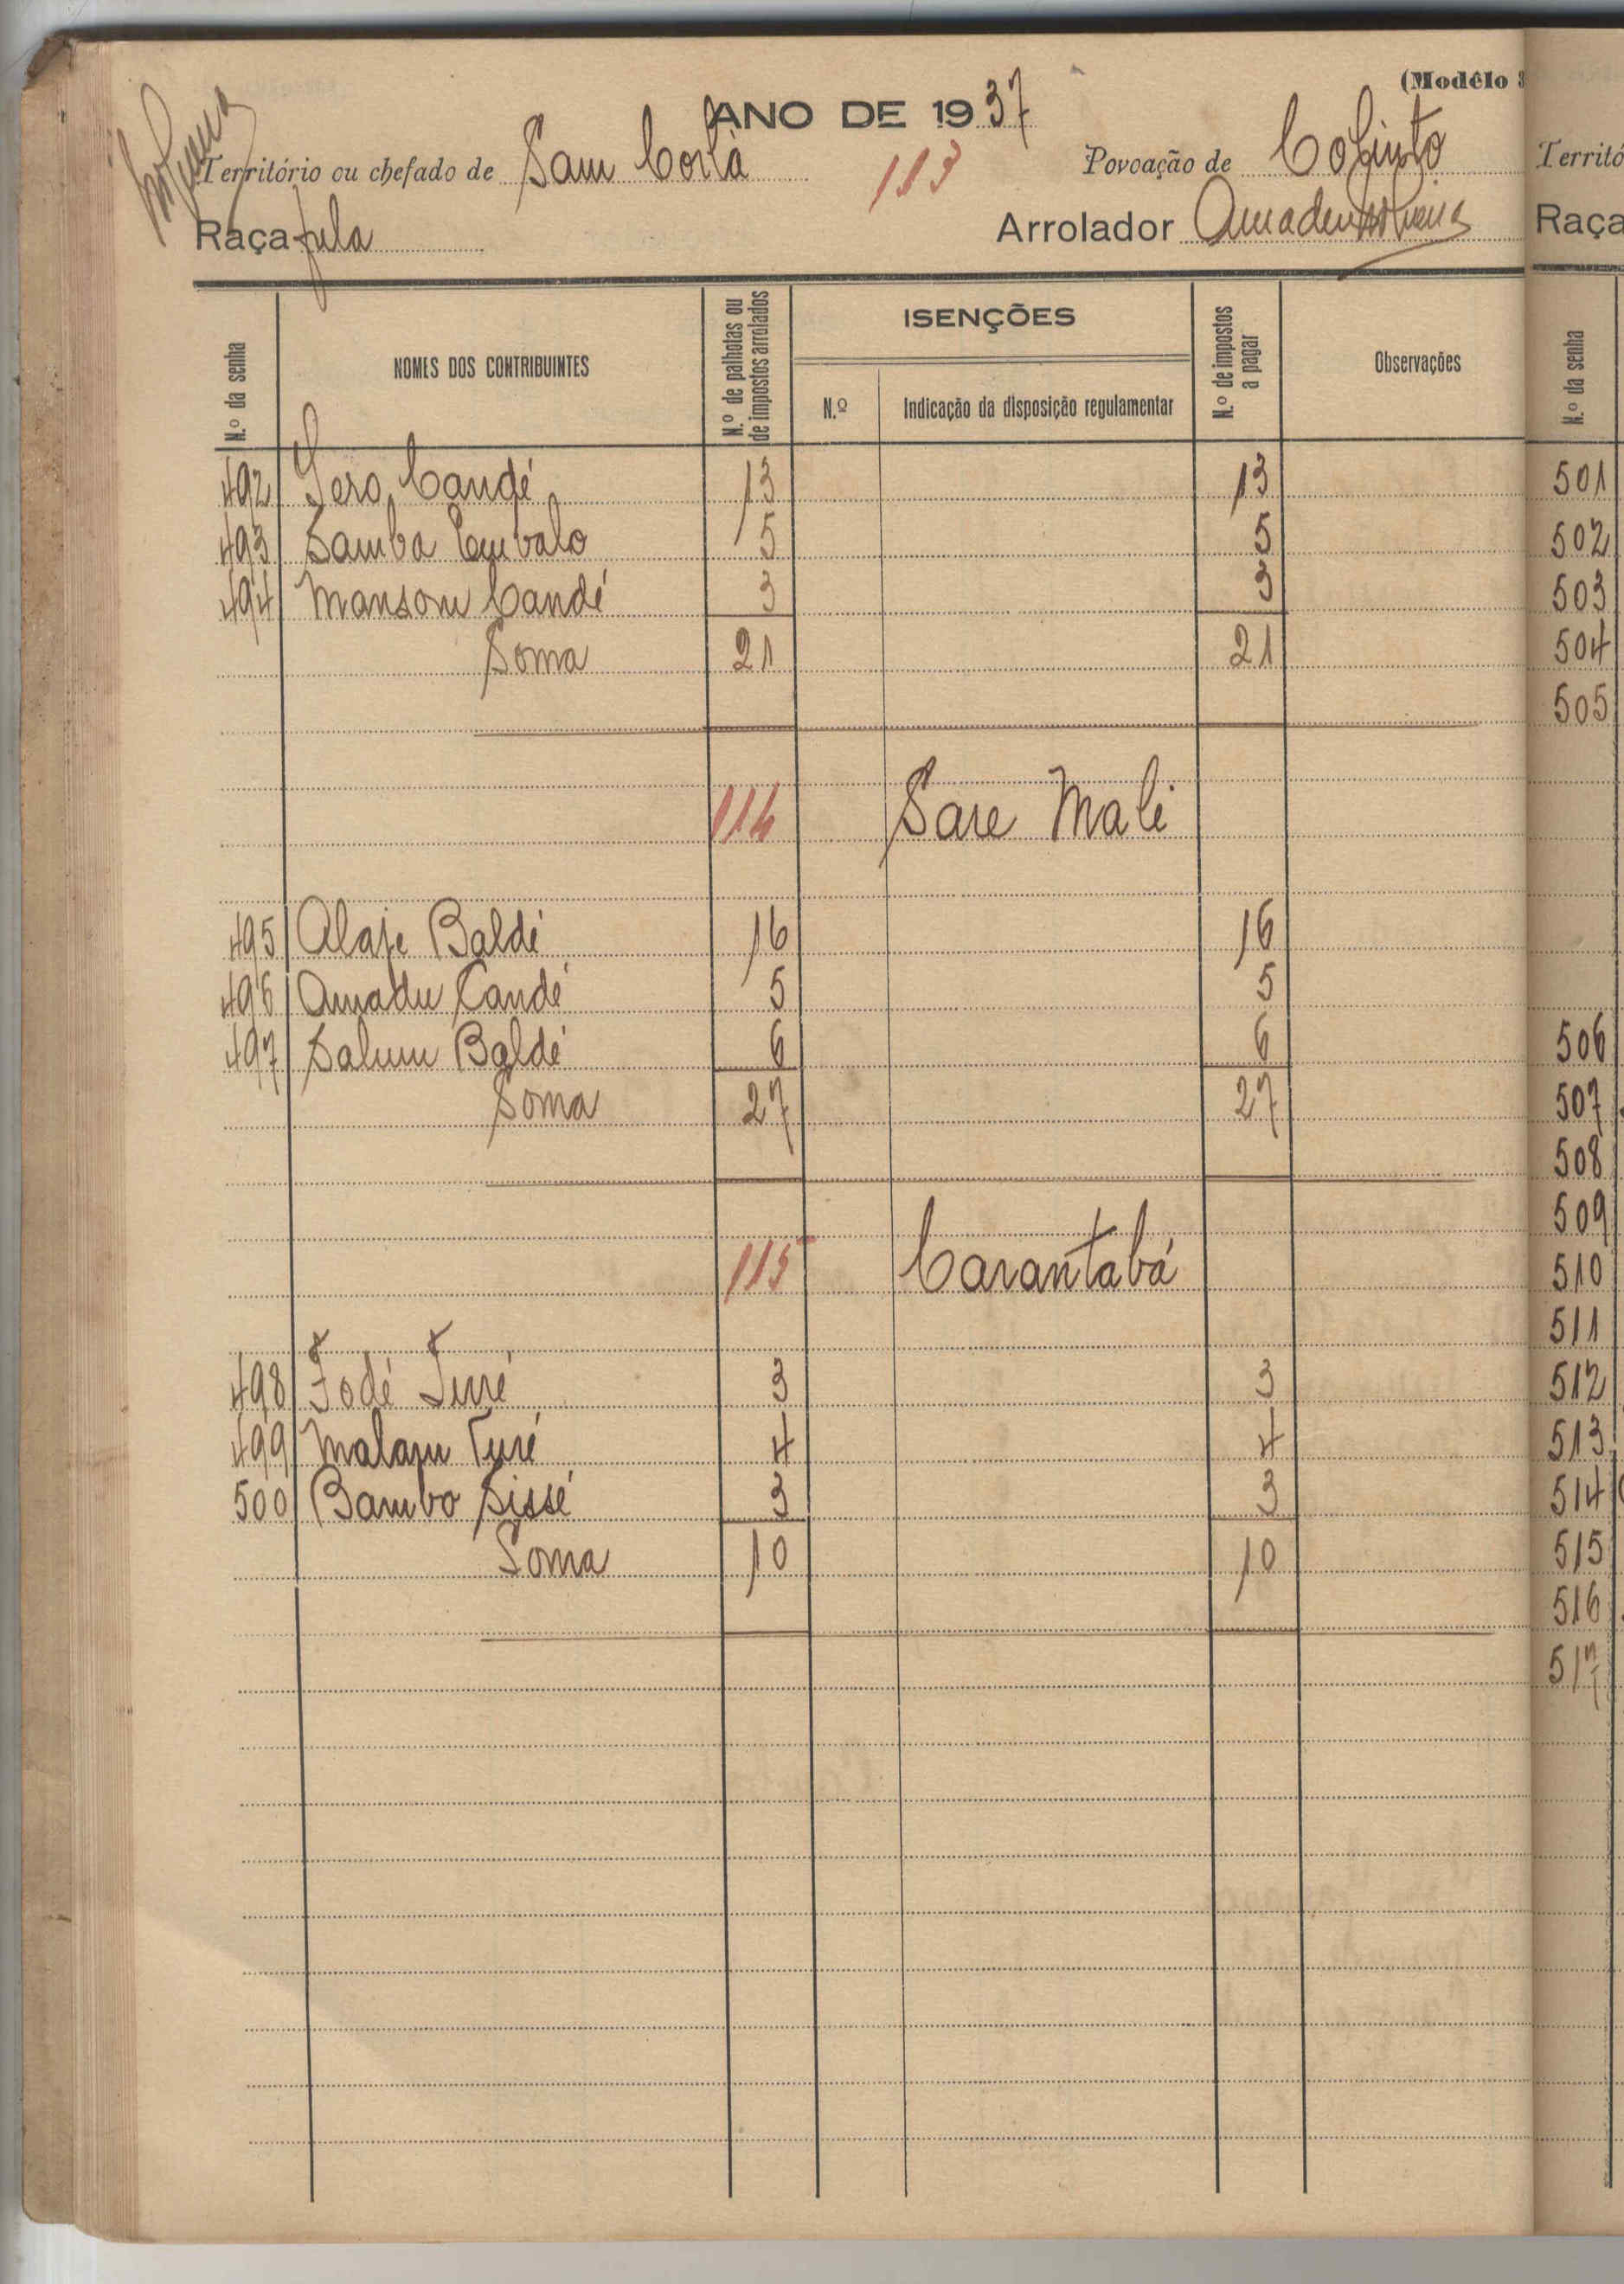 (Modêlo 3
ANO DE 1937
Território ou chefado de Sam Corlà 113 Povoação de
Raça fula Arrolador Amadeu
N.º da senha NOMES DOS CONTRIBUINTES N.º de palhotas ou de impostos arrolados ISENÇÕES N.º Indicação da disposição regulamentar N.º de impostos a pagar Observações
492 Iero Candé 13 13
493 Samba Embalo 5 5
494 Mansom Candé 3 3
Soma 21 21
114 Sare Mali
495 Alaje Baldé 16 16
496 Amadu Candé 5 5
497 Salum Baldé 6 6
Soma 27 27
115 Carantabá
498 Fodé Turé 3 3
499 Malam Turé 4 4
500 Bambo Sissé 3 3
Soma 10 10
Territó
Raça
N.º da senha
501
502
503
504
505
506
507
508
509
510
511
512
513
514
515
516
517